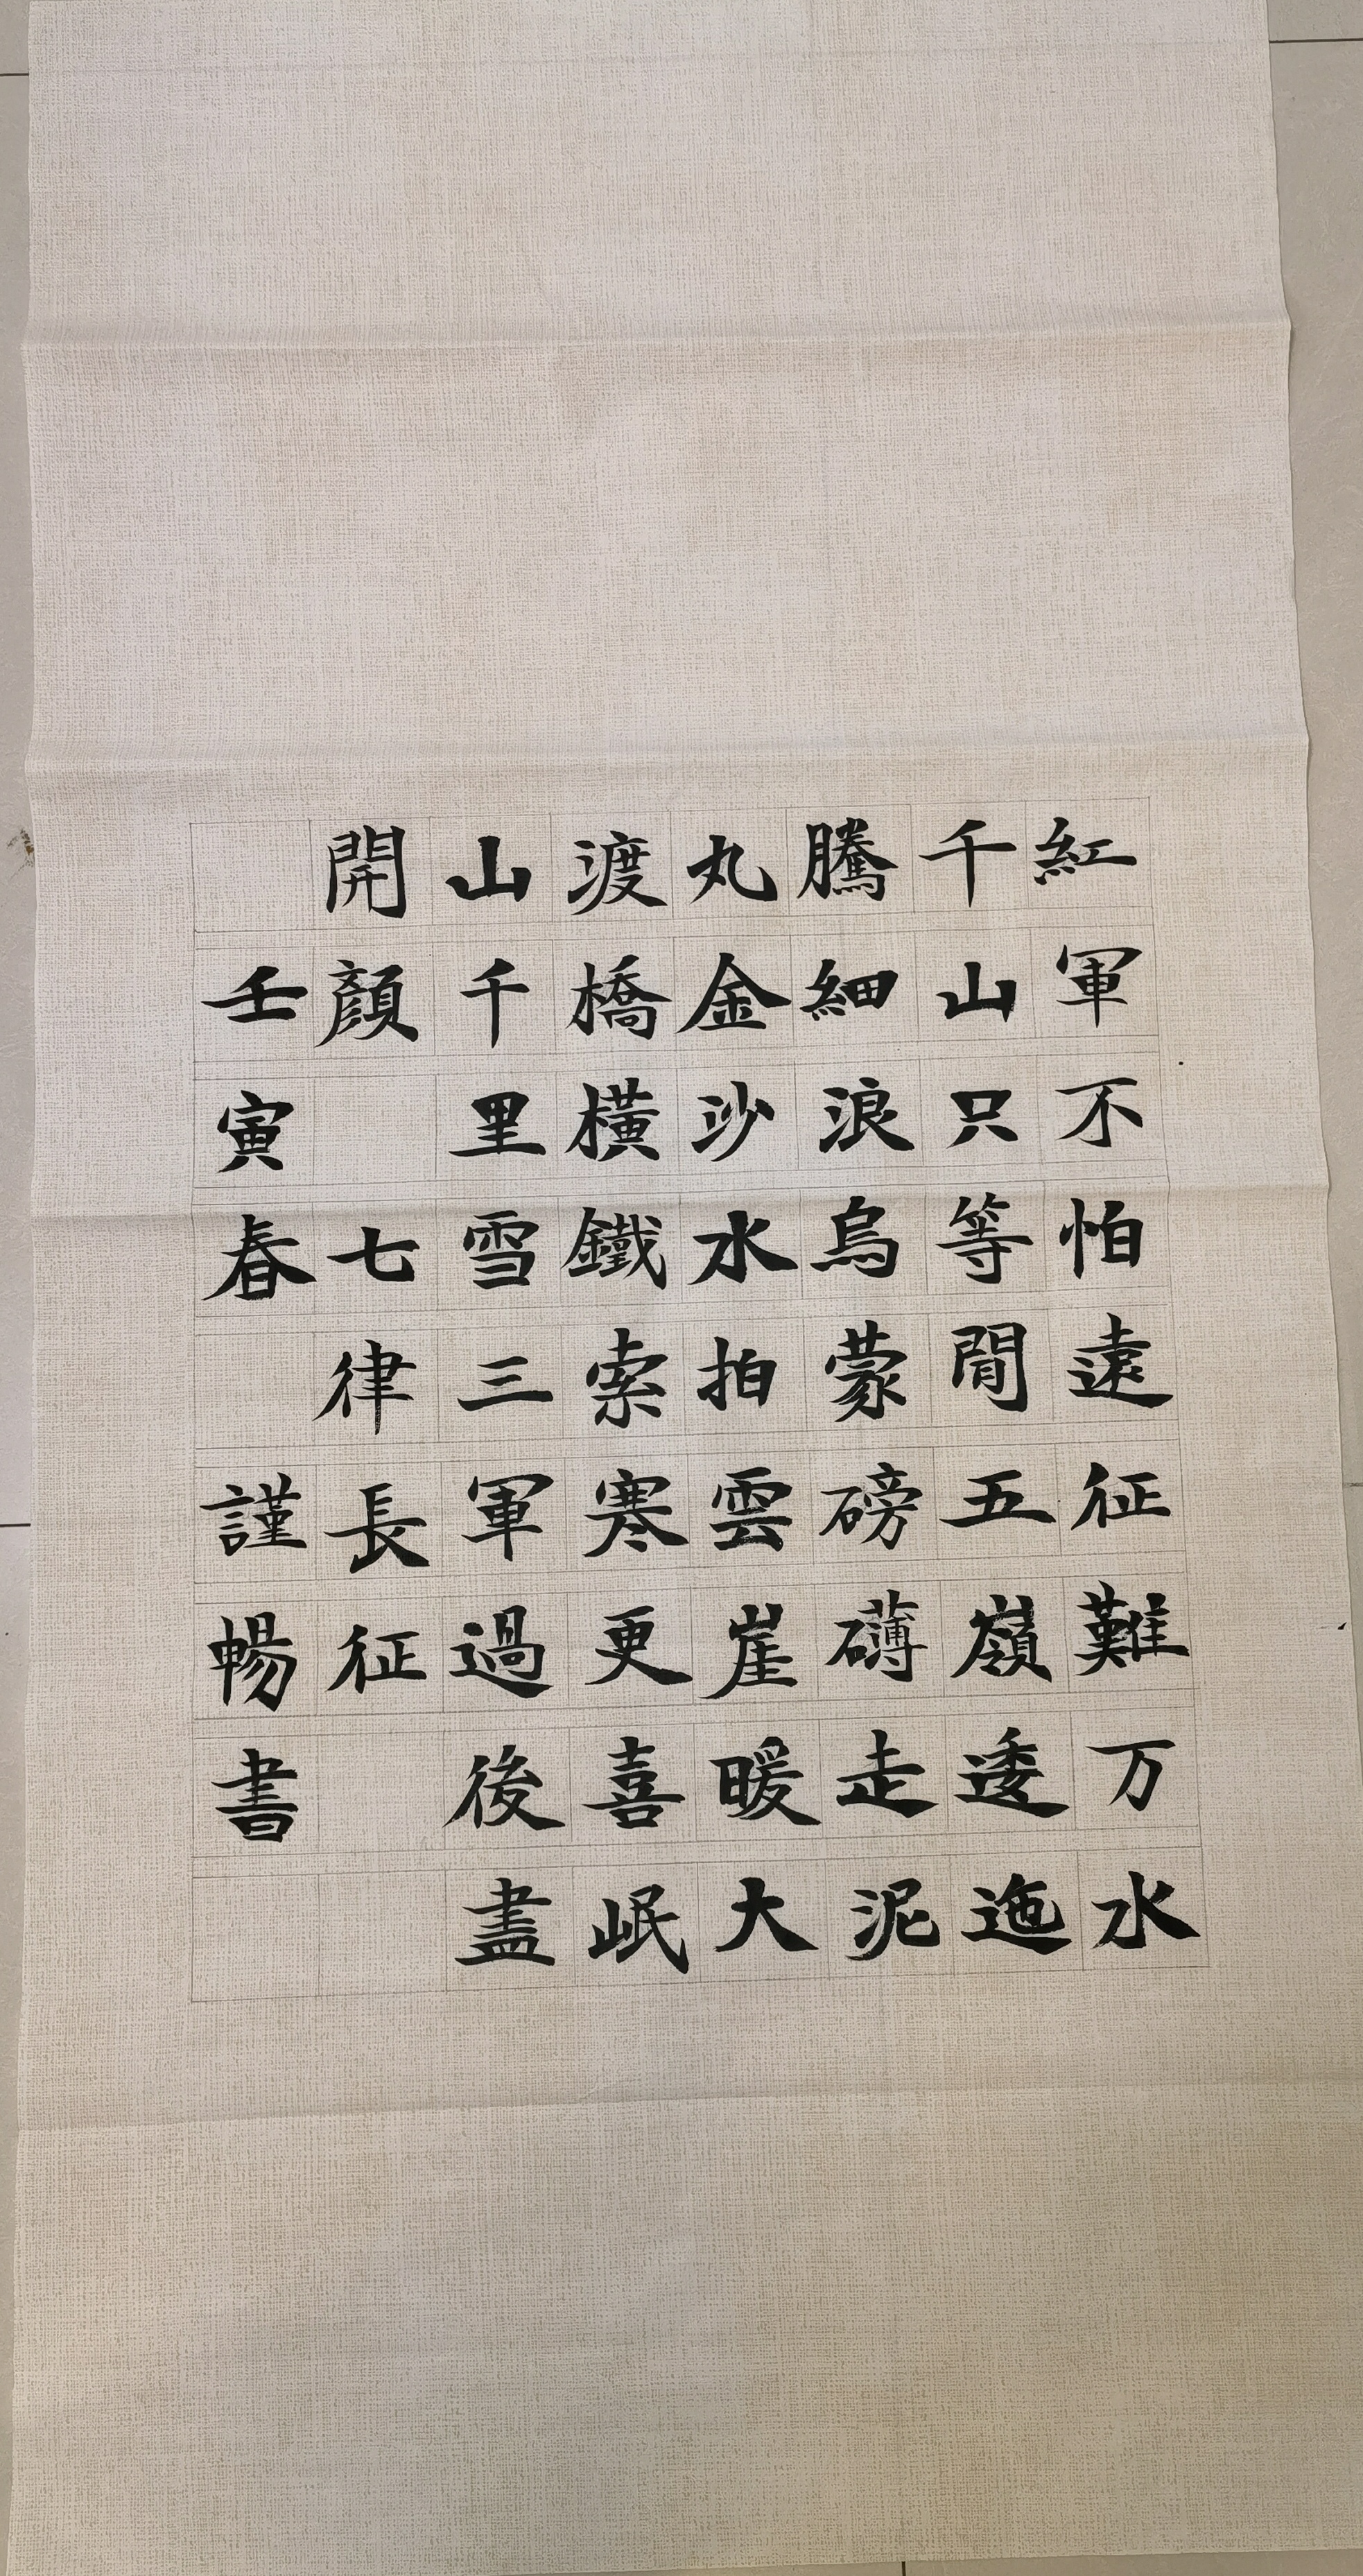 紅軍不怕遠征難万水
千山只等閒五嶺逶迤
騰細浪烏蒙磅礴走泥
丸金沙水拍雲崖暖大
渡橋橫鐵索寒更喜岷
山千里雪三軍過後盡
開顏 七律 長征
壬寅春 謹暢書